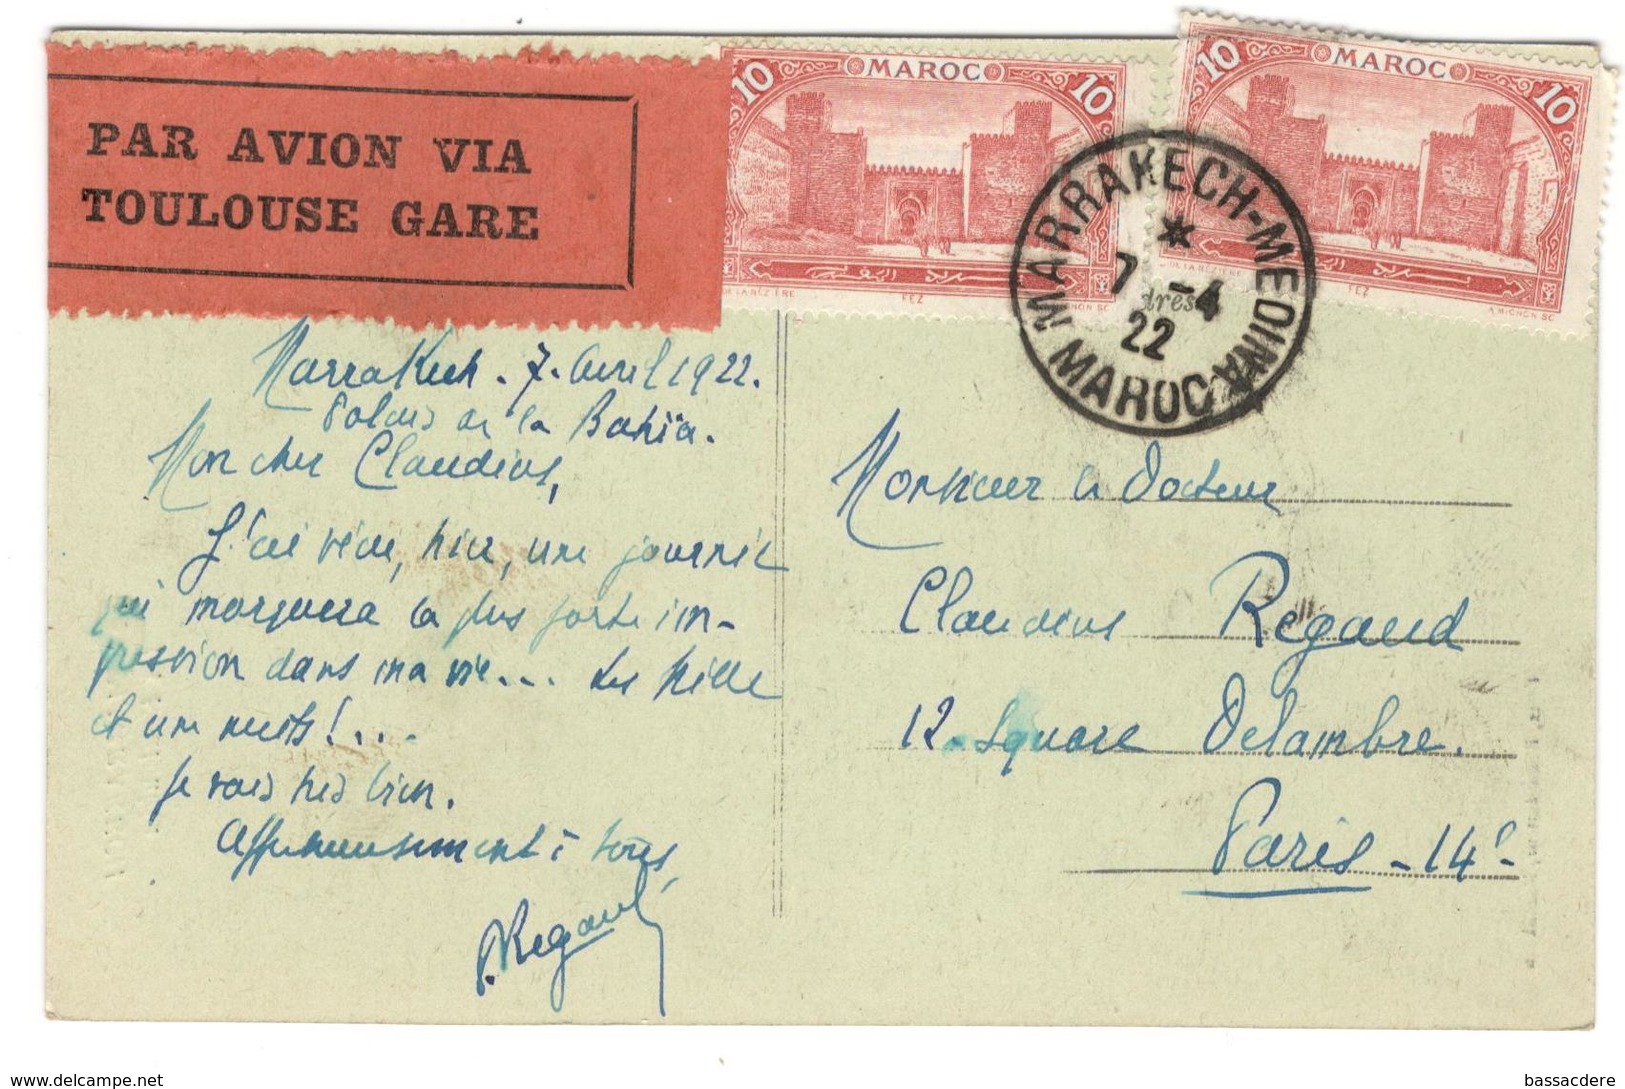 PAR AVION VIA
TOULOUSE GARE
10 MAROC 10
FEZ
10 MAROC 10
FEZ
MARRAKECH-MEDINA
7 -4
22
MAROC
Marrakech. 7. Avril 1922.
Palais de la Bahïa.
Mon cher Claudius,
J'ai vécu, hier, une journée
qui marquera la plus forte im-
pression dans ma vie... Les Mille
et une nuits!...
Je vais très bien.
Affectueusement à tous,
Regaud
Monsieur le Docteur
Claudius Regaud
12. Square Delambre.
Paris - 14e
bassacdere